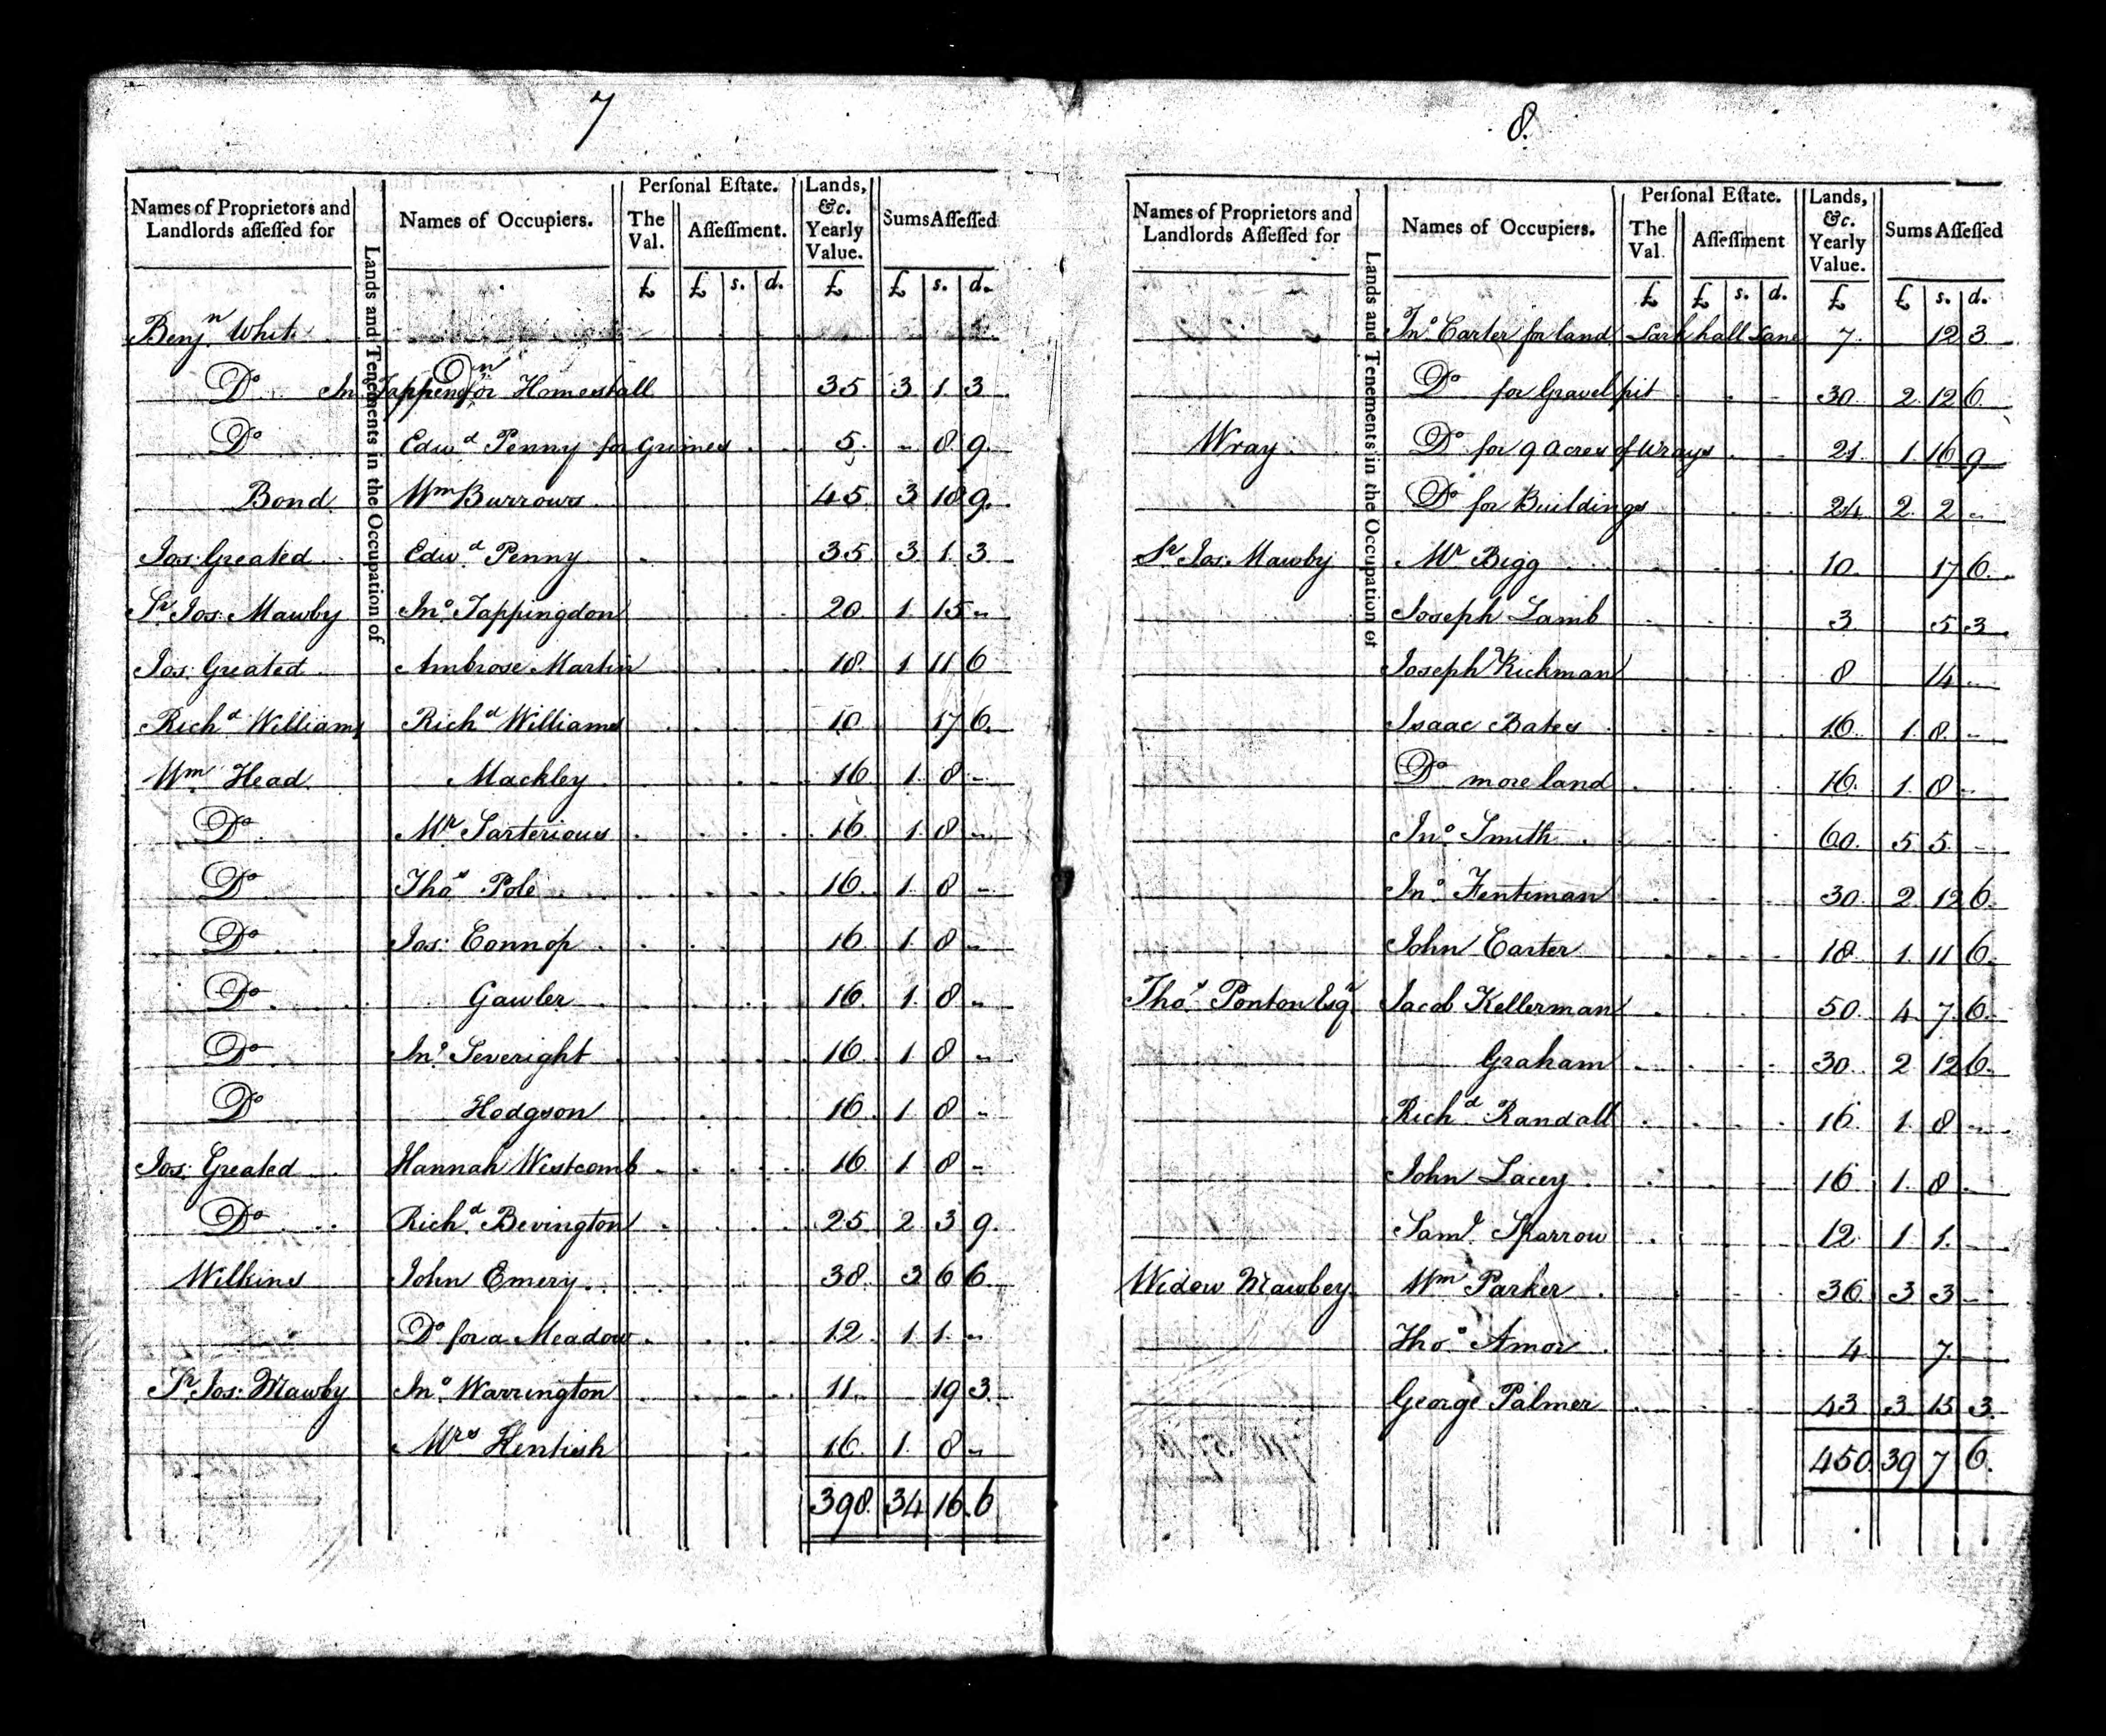 7
Names of Proprietors and Landlords aſſeſſed for
Lands and Tenements in the Occupation of
Names of Occupiers.
Perſonal Eſtate.
The Val.
Aſſeſſment.
Lands, &c. Yearly Value.
Sums Aſſeſſed
£ £ s. d. £ £ s. d.
Benjn. White
Do Jno Tappen for Homestall 35 3 1 3
Do Edwd Penny for Grimes 5 - 8 9
Bond Wm Burrows 45 3 18 9
Jos: Greated Edwd Penny 35 3 1 3
Sr Jos: Mawby Jno Tappingdon 20 1 15 -
Jos: Greated Ambrose Martin 18 1 11 6
Richd Williams Richd Williams 10 17 6
Wm Head Mackley 16 1 8 -
Do Mr Sarterious 16 1 8 -
Do Thos Pole 16 1 8 -
Do Jos: Connop 16 1 8 -
Do Gawler 16 1 8 -
Do Jno Severight 16 1 8 -
Do Hodgson 16 1 8 -
Jos: Greated Hannah Westcomb 16 1 8 -
Do Richd Bevington 25 2 3 9
Wilkins John Emery 38 3 6 6
Do for a Meadow 12 1 1 -
Sr Jos: Mawby Jno Warrington 11 19 3
Mrs Kentish 16 1 8 -
398 34 16 6
8
Names of Proprietors and Landlords Aſſeſſed for
Lands and Tenements in the Occupation of
Names of Occupiers.
Perſonal Eſtate.
The Val.
Aſſeſſment
Lands, &c. Yearly Value.
Sums Aſſeſſed
£ £ s. d. £ £ s. d.
Jno Carter for land Lark hall Lane 7 12 3
Do for Gravel pit 30 2 12 6
Wray Do for 9 Acres of Wrays 21 1 16 9
Do for Buildings 24 2 2 -
Sr Jos: Mawby Mr Bigg 10 17 6
Joseph Lamb 3 5 3
Joseph Rickman 8 14 -
Isaac Bates 16 1 8 -
Do more land 16 1 8 -
Jno Smith 60 5 5 -
Jno Fentiman 30 2 12 6
John Carter 18 1 11 6
Thos Ponton Esqr Jacob Kellerman 50 4 7 6
Graham 30 2 12 6
Richd Randall 16 1 8 -
John Lacey 16 1 8 -
Saml Sparrow 12 1 1 -
Widow Mawbey Wm Parker 36 3 3 -
Thos Amor 4 7 -
George Palmer 43 3 15 3
450 39 7 6